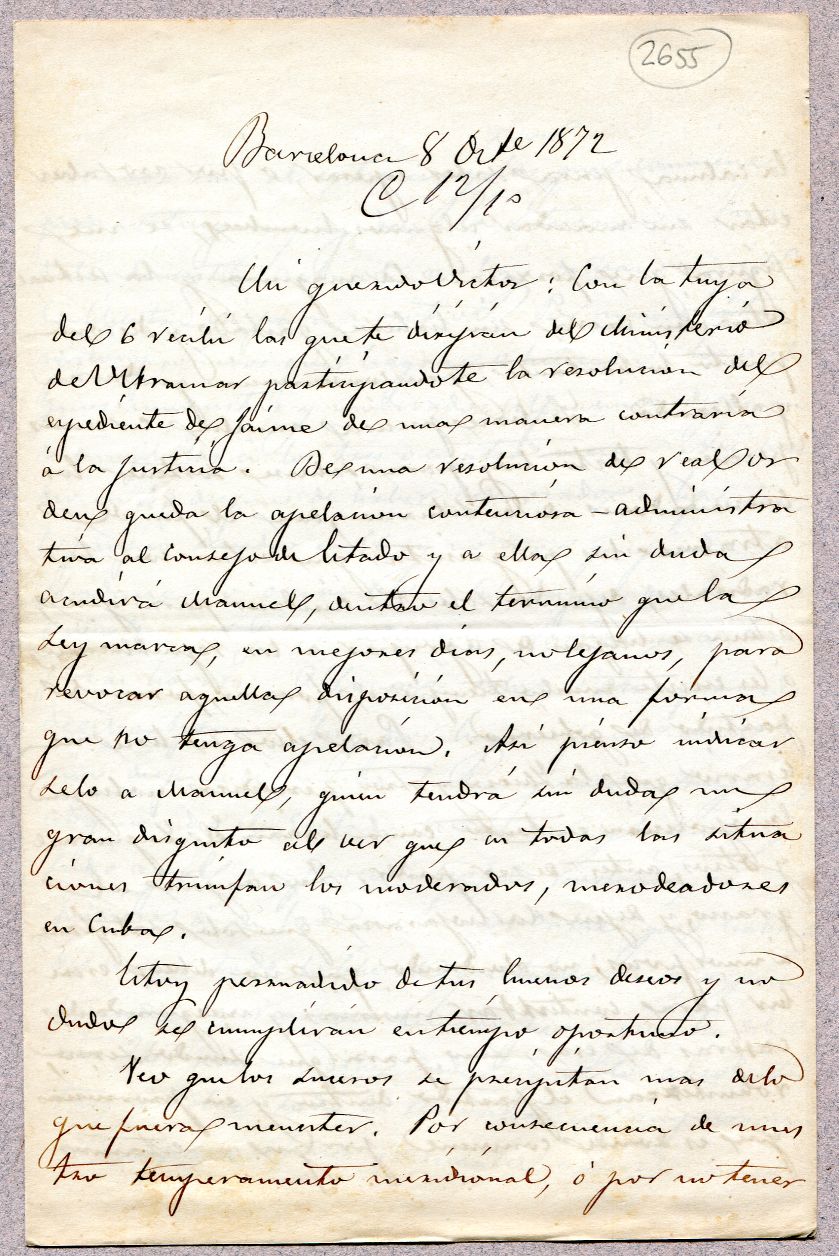 2655
Barcelona 8 Octe 1872
C 12/10
Mi querido Victor: Con la tuya
del 6 recibi las que te dirigian del Ministerio
de Ultramar participandote la resolucion del
expediente de Jaime de una manera contraria
á la justicia. De una resolucion de real or
den queda la apelacion contenciosa-administra
tiva al Consejo de Estado y a ella sin duda
acudirá Manuel, dentro el termino que la
Ley marca, en mejores dias, no lejanos, para
revocar aquella disposicion en una forma
que no tenga apelacion. Asi pienso indicar
selo a Manuel, quien tendrá sin duda un
gran disgusto al ver que en todas las situa
ciones triunfan los moderados, merodeadores
en Cuba.
Estoy persuadido de tus buenos deseos y no
dudo se cumplirán en tiempo oportuno.
Veo que los sucesos se precipitan mas de lo
que fuera menester. Por consecuencia de nues
tro temperamento meridional, ó por no tener